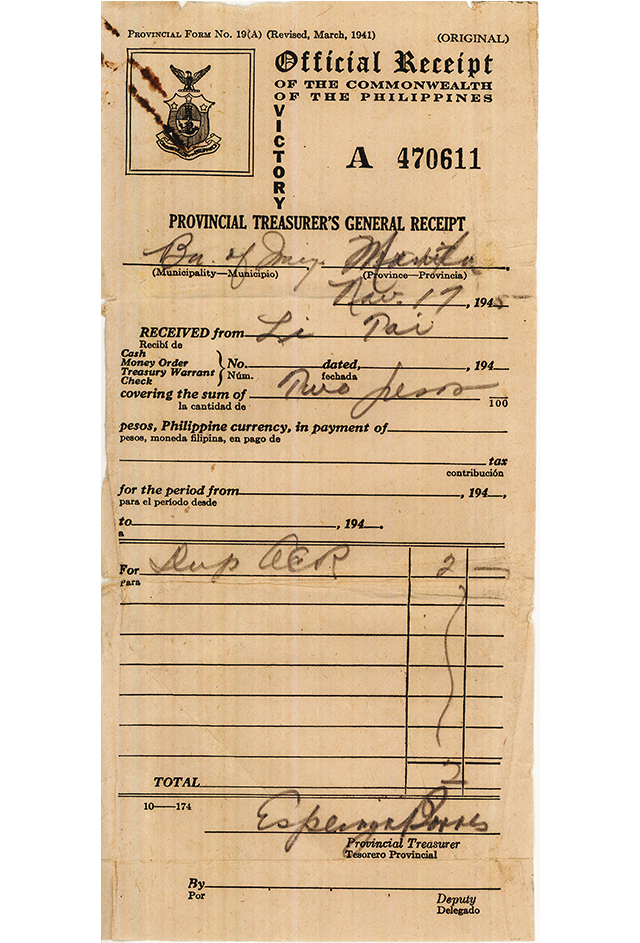 PROVINCIAL FORM NO. 19(A) (Revised, March, 1941) (ORIGINAL)
Official Receipt
OF THE COMMONWEALTH
OF THE PHILIPPINES
VICTORY
A 470611
PROVINCIAL TREASURER'S GENERAL RECEIPT
Bu. of Manila
(Municipality—Municipio) (Province—Provincia)
Nov. 17, 1945
RECEIVED from Li Tai
Recibí de
Cash
Money Order
Treasury Warrant
Check
No. dated, , 194
Núm. fechada
covering the sum of Two pesos
la cantidad de 100
pesos, Philippine currency, in payment of
pesos, moneda filipina, en pago de
tax
contribución
for the period from , 194 ,
para el período desde
to , 194 .
a
For Dup ACR 2 —
Para
TOTAL 2
10—174
Esperanza
Provincial Treasurer
Tesorero Provincial
By
Por
Deputy
Delegado